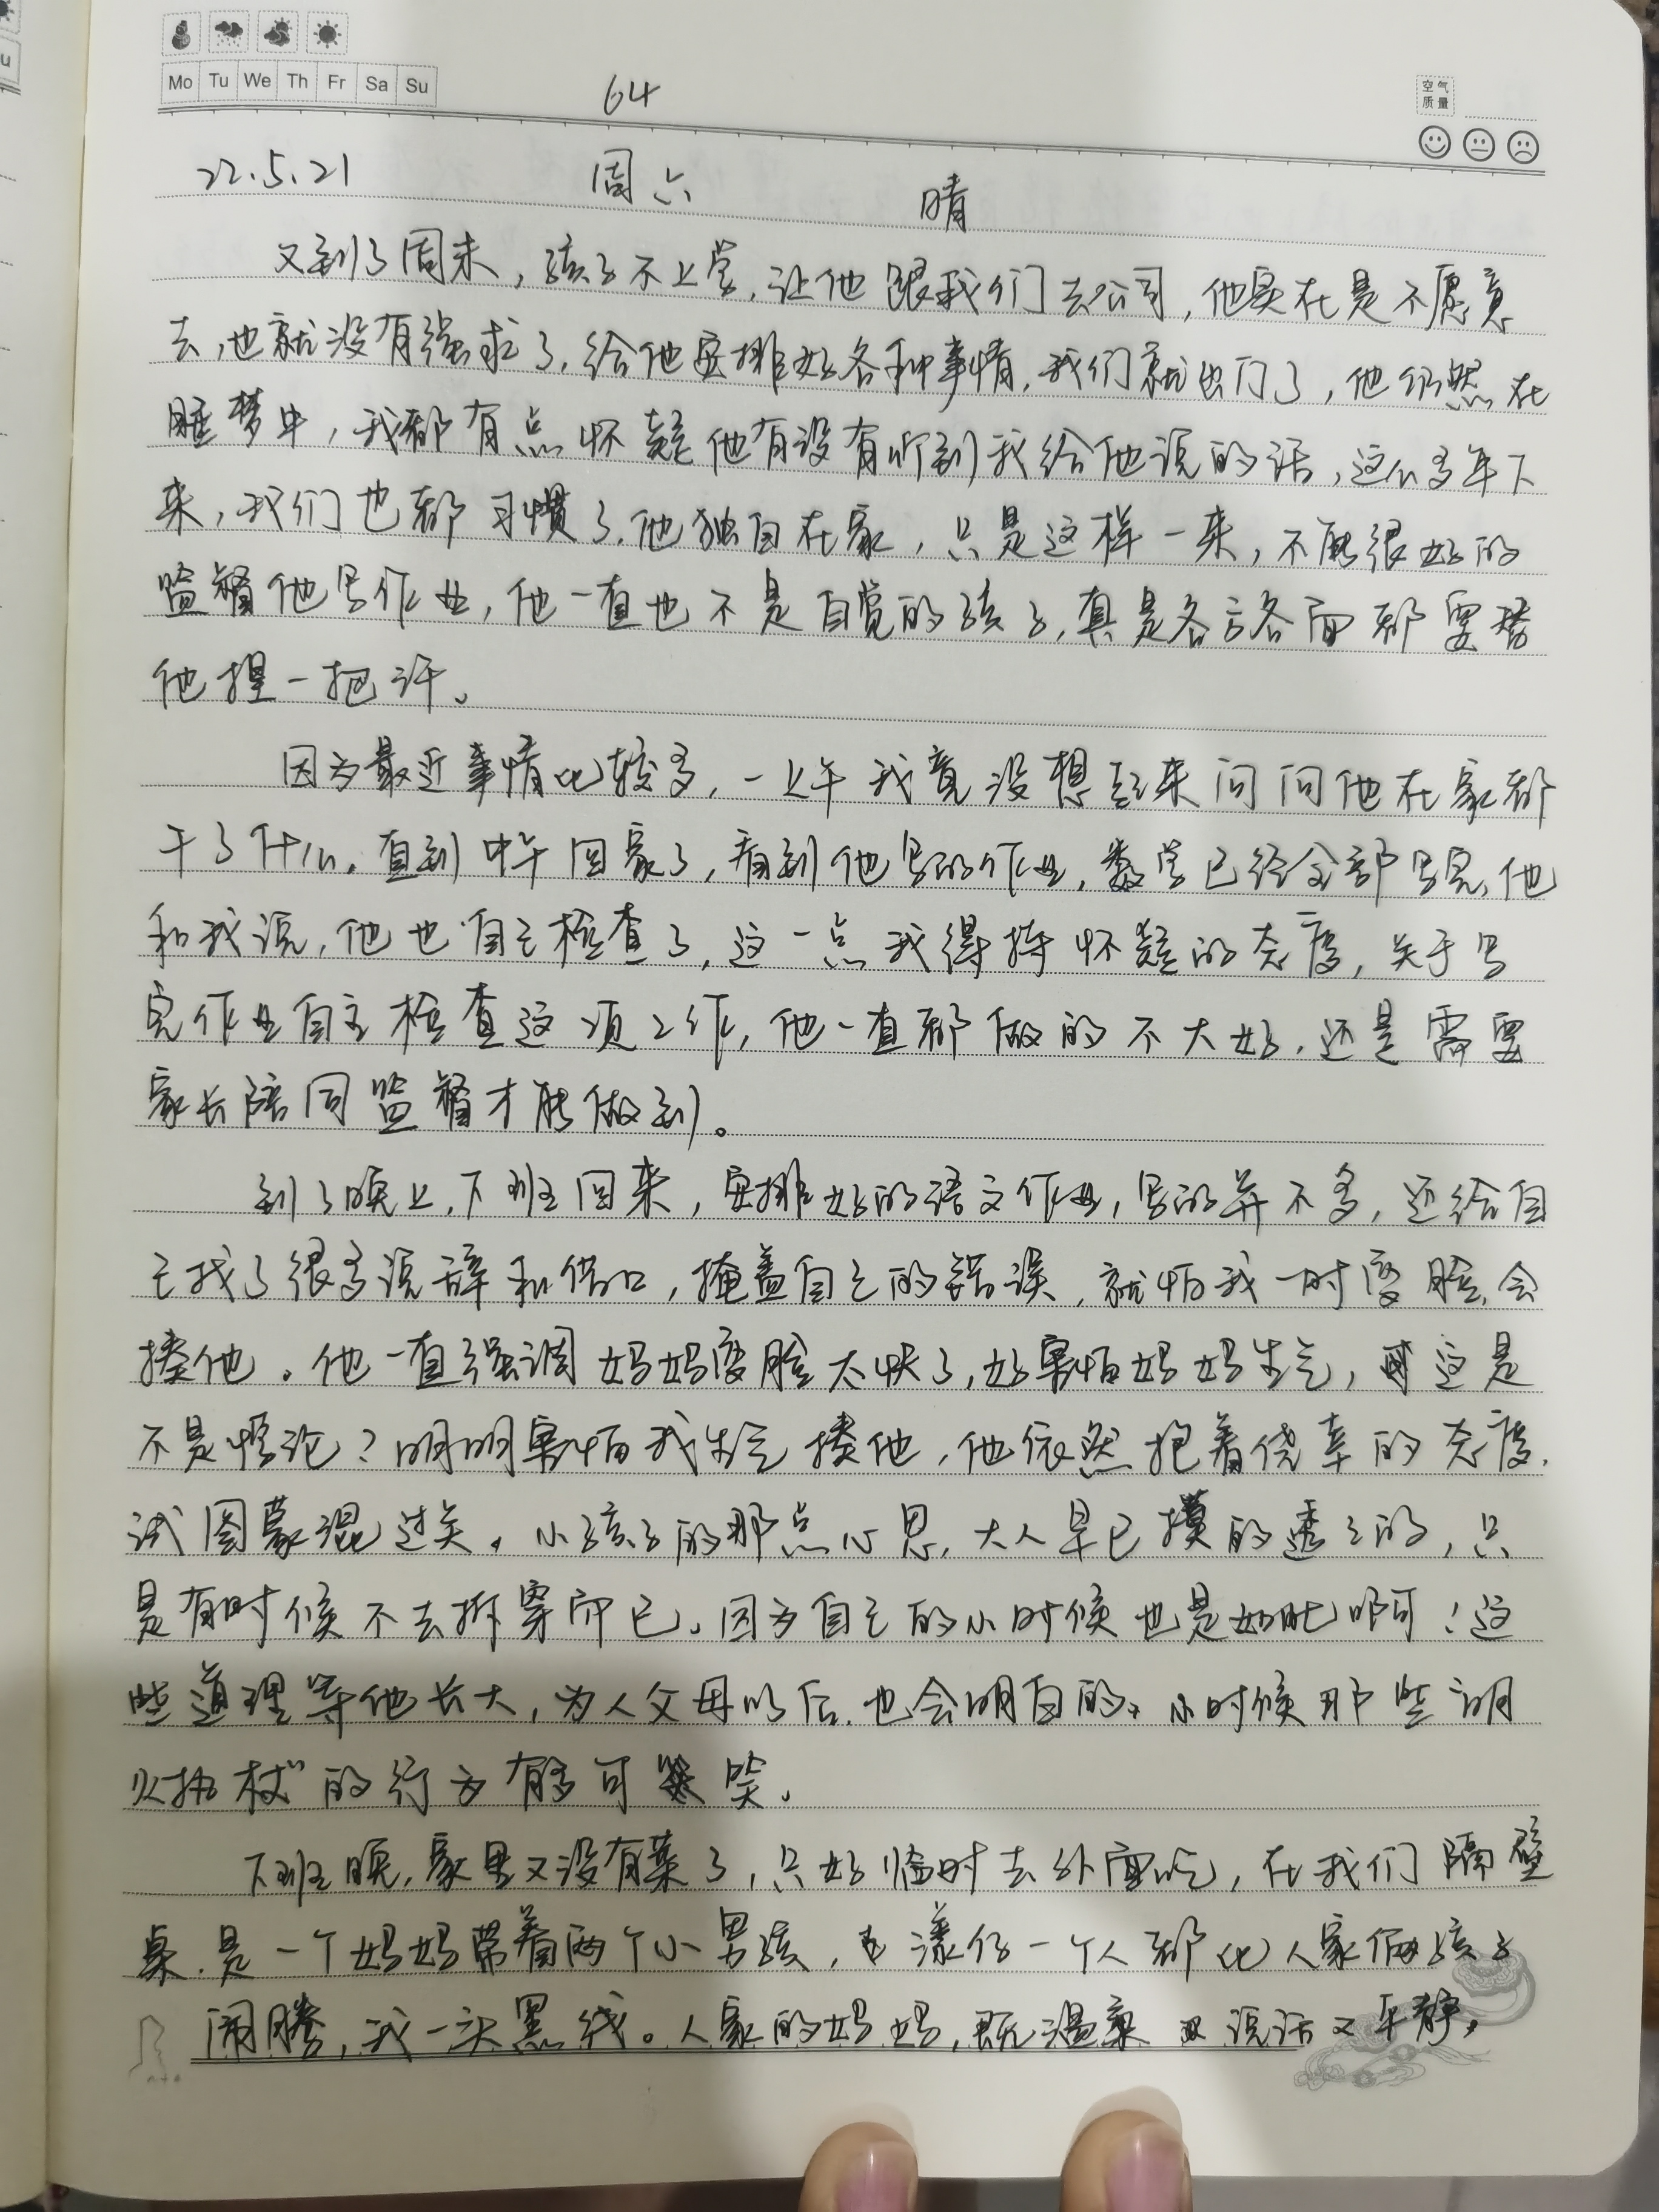 Mo Tu We Th Fr Sa Su
64
空气
质量
22.5.21 周六 晴
又到了周末,孩子不上学,让他跟我们去公司,他实在是不愿意
去,也就没有强求了,给他安排好各种事情,我们就出门了,他仍然在
睡梦中,我都有点怀疑他有没有听到我给他说的话,这么多年下
来,我们也都习惯了,他独自在家,只是这样一来,不能很好的
监督他写作业,他一直也不是自觉的孩子,真是各方各面都要替
他捏一把汗。
因为最近事情比较多,一上午我竟没想起来问问他在家都
干了什么。直到中午回家了,看到他写的作业,数学已经全部写完,他
和我说,他也自己检查了,这一点我得持怀疑的态度,关于写
完作业自主检查这项工作,他一直都做的不大好,还是需要
家长陪同监督才能做到。
到了晚上,下班回来,安排好的语文作业,写的并不多,还给自
己找了很多说辞和借口,掩盖自己的错误,就怕我一时变脸,会
揍他。他一直强调妈妈变脸太快了,好害怕妈妈生气,可这是
不是悖论?明明害怕我生气揍他,他依然抱着侥幸的态度,
试图蒙混过关。小孩子的那点心思,大人早已摸的透透的,只
是有时候不去拆穿而已。因为自己的小时候也是如此啊!这
些道理等他长大,为人父母以后,也会明白的。小时候那些“明
火执杖”的行为有多可笑。
下班晚,家里又没有菜了,只好临时去外面吃,在我们隔壁
桌,是一个妈妈带着两个小男孩,漾仔一个人都比人家俩孩子
闹腾,我一头黑线。人家的妈妈,既温柔说话又平静,